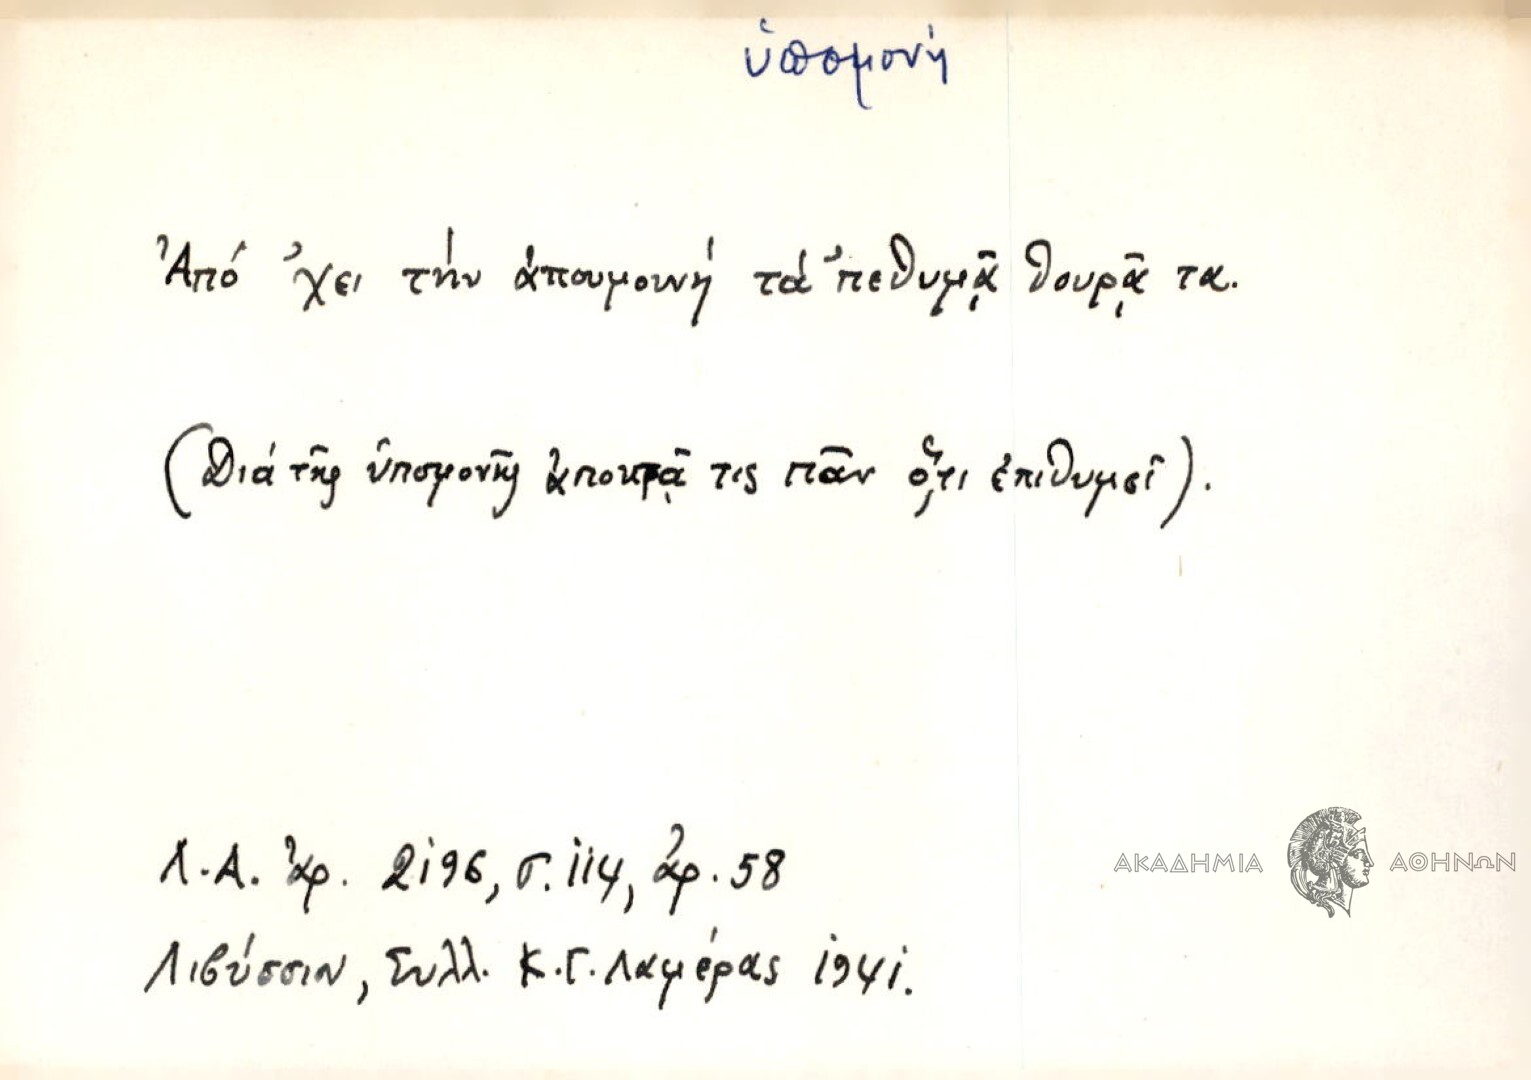 ὑπομονή
Ἀπό ᾿χει τήν ἀπουμουνή τά ᾿πεθυμᾷ θουρᾷ τα.
(Διά τῆς ὑπομονῆς ἀποκτᾷ τις πᾶν ὅ,τι ἐπιθυμεῖ).
Λ.Α. ἀρ. 2196, σ. 114, ἀρ. 58
Λιβύσσιν, Συλλ. Κ.Γ. Λαμέρας 1941.
ΑΚΑΔΗΜΙΑ ΑΘΗΝΩΝ